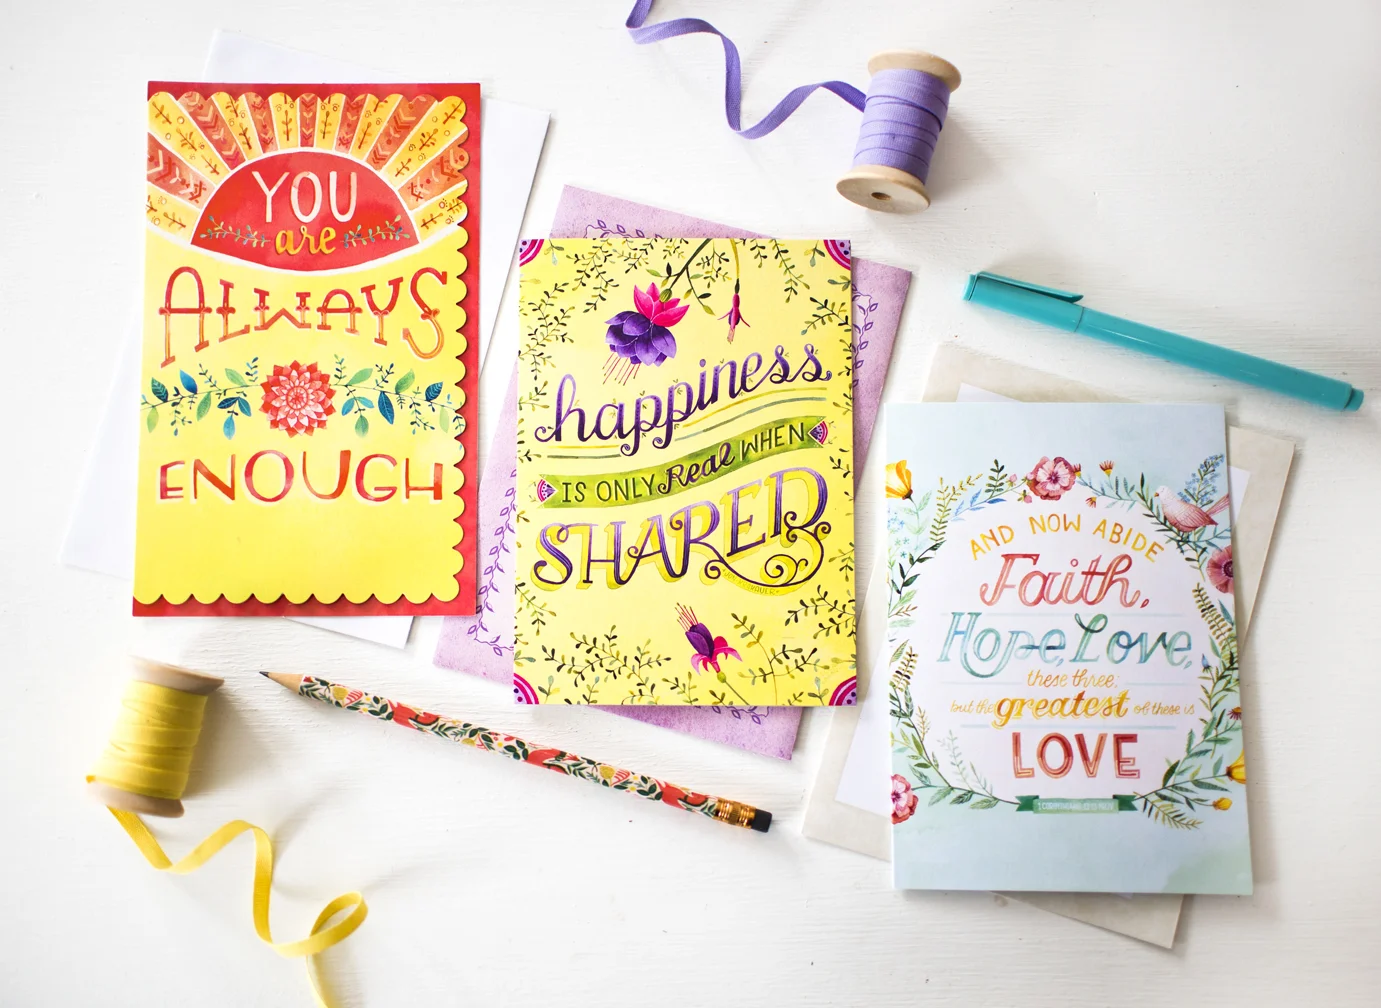 YOU
are
ALWAYS
ENOUGH
happiness
IS ONLY Real WHEN
SHARED
AND NOW ABIDE
Faith,
Hope, Love,
these three;
but the greatest of these is
LOVE